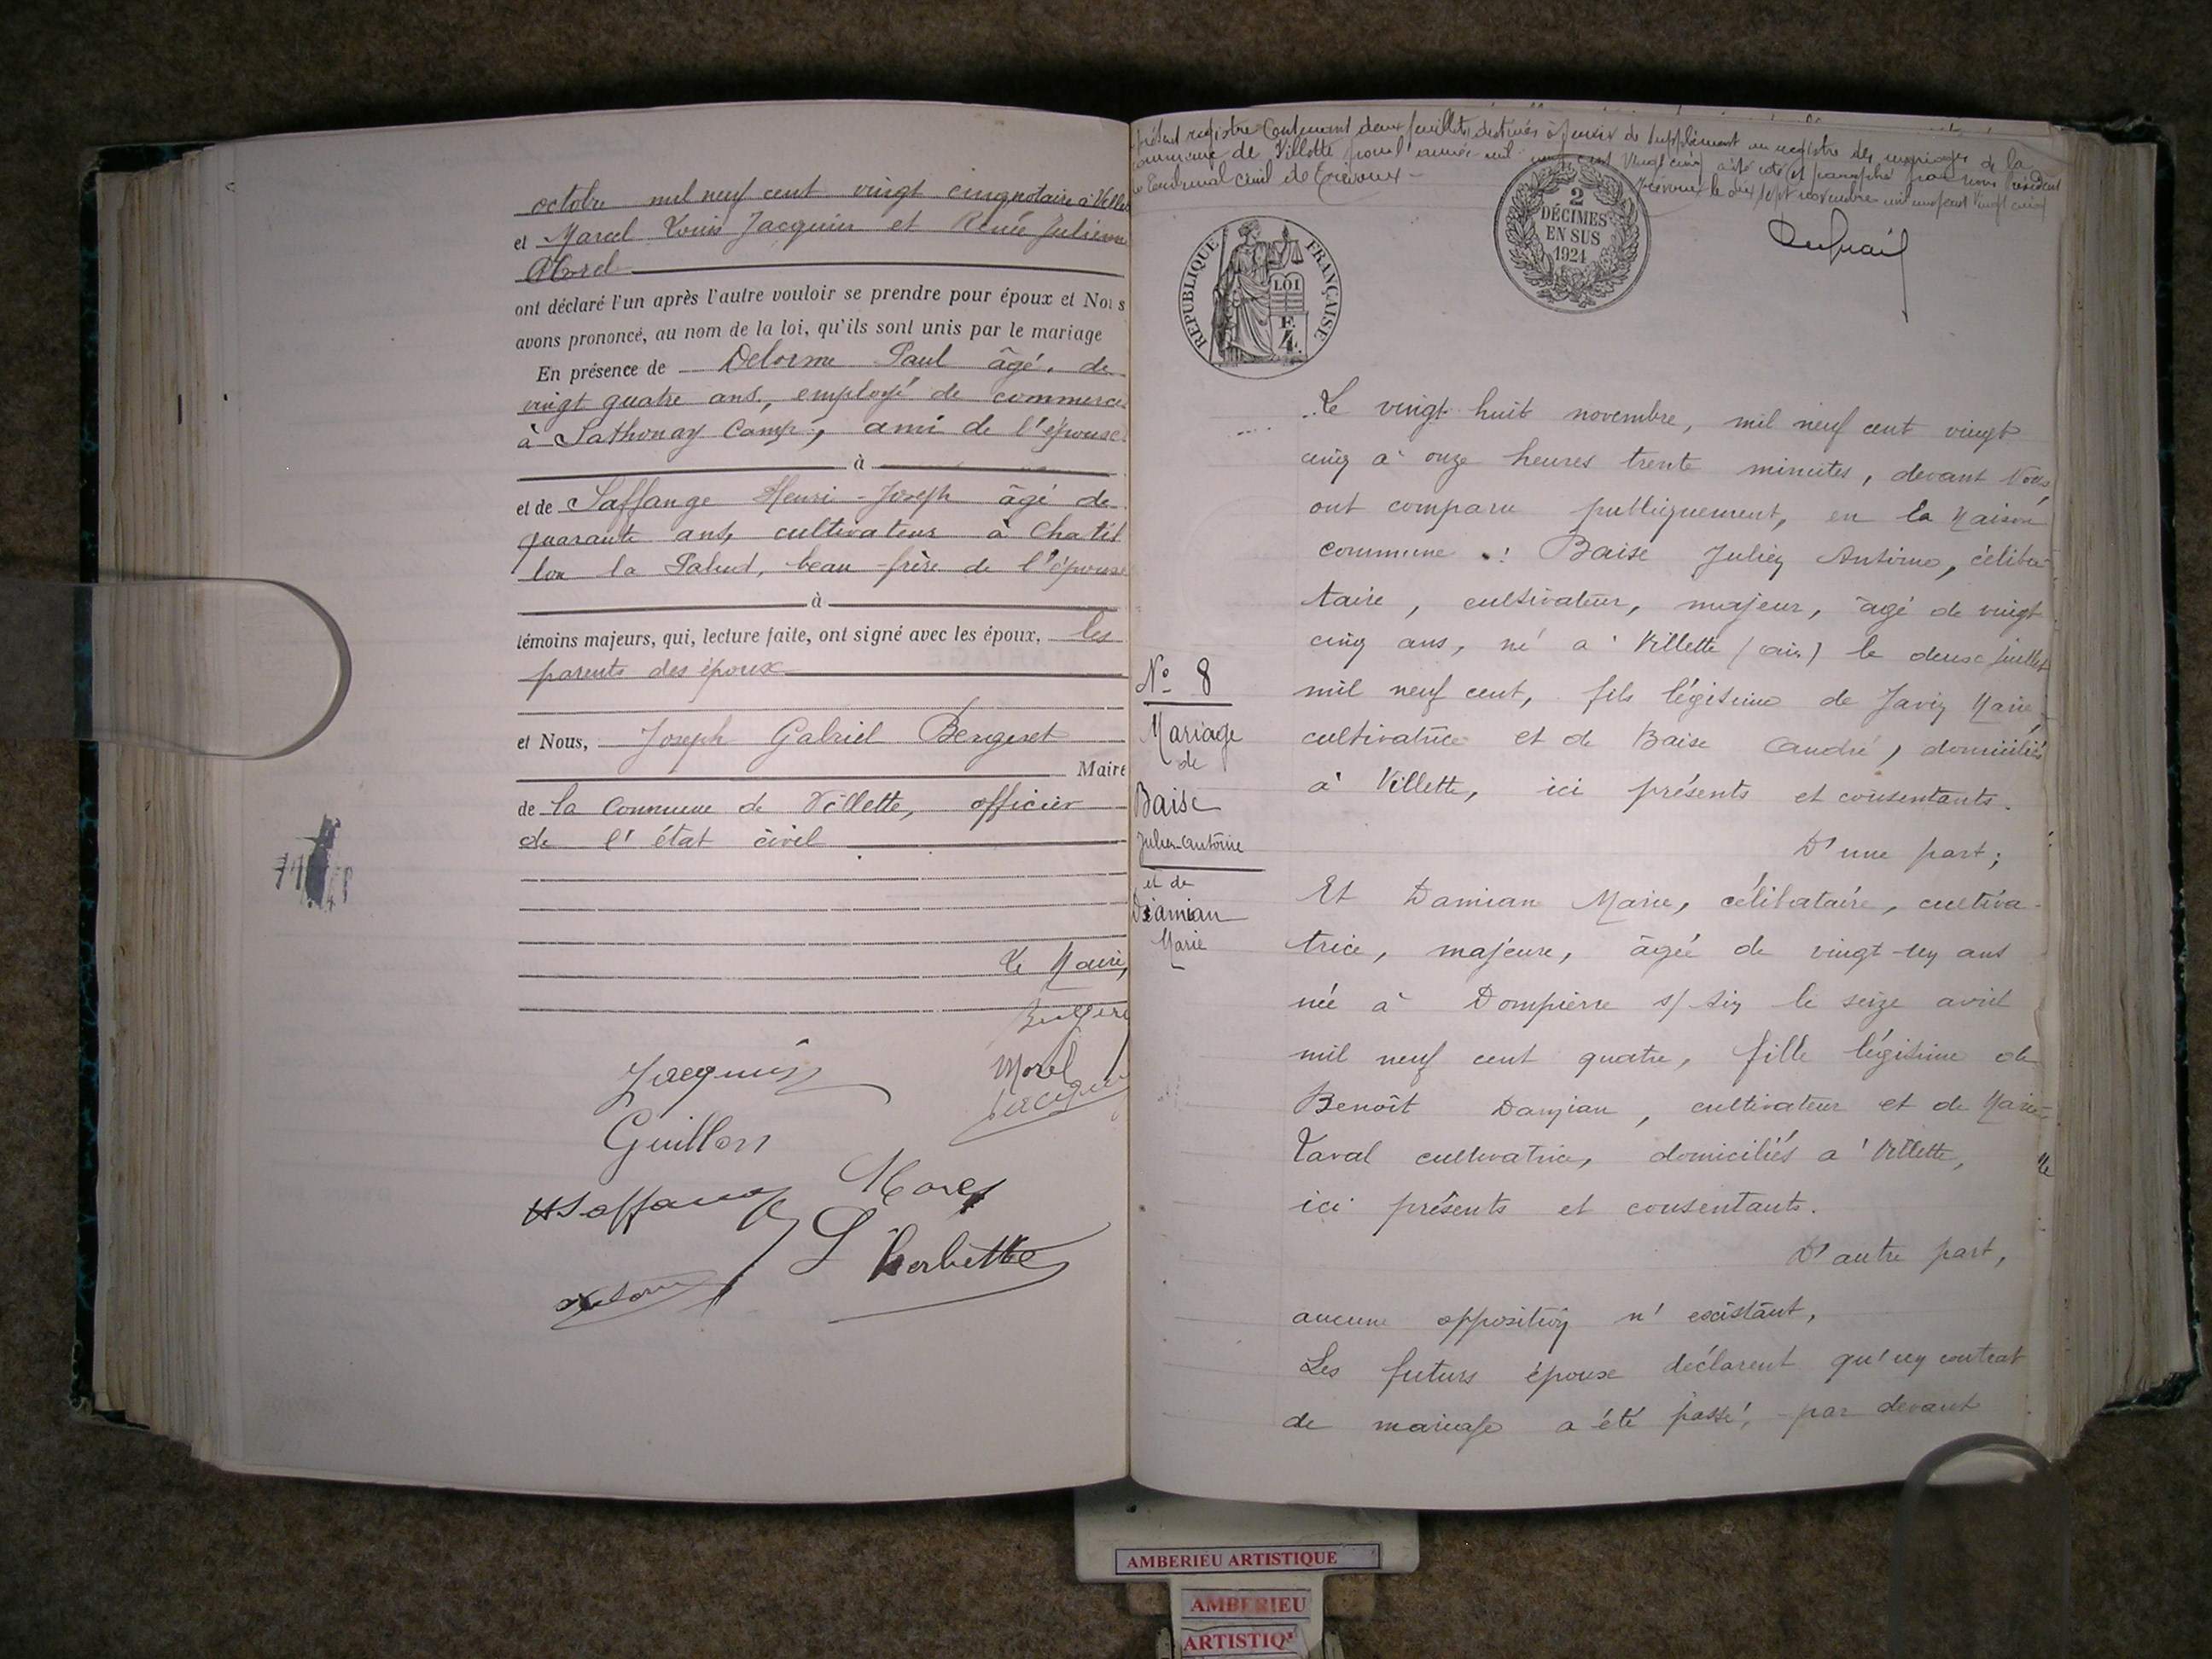 octobre mil neuf cent vingt cinq notaire à Villet
et Marcel Louis Jacquier et Renée Julienne
Morel
ont déclaré l'un après l'autre vouloir se prendre pour époux et Nous
avons prononcé, au nom de la loi, qu'ils sont unis par le mariage
En présence de Delorme Paul âgé de
vingt quatre ans, employé de commerce
à Sathonay Camp, ami de l'épouse
à
et de Saffange Henri-Joseph âgé de
quarante ans, cultivateur à Chatil
lon la Palud, beau-frère de l'épouse
à
témoins majeurs, qui, lecture faite, ont signé avec les époux, les
parents des époux
et Nous, Joseph Gabriel Bergeret
Maire
de la Commune de Villette, officier
de l'état civil
Le Maire,
Morel
Guillon
Morel
L Kerbitte
présent registre contenant deux feuillets destinés à servir de supplément au registre des mariages de la
commune de Villette pour l'année mil neuf cent vingt cinq a été coté et paraphé par nous Président
Tribunal civil de Trévoux -
Trévoux le dix sept novembre mil neuf cent vingt cinq
REPUBLIQUE FRANÇAISE
LOI
F.
4.
2
DÉCIMES
EN SUS
1924
Le vingt huit novembre, mil neuf cent vingt
cinq à onze heures trente minutes, devant Nous
ont comparu publiquement, en la Maison
commune : Baise Julien Antoine, céliba-
taire, cultivateur, majeur, âgé de vingt
cinq ans, né à Villette (ain) le deux juillet
mil neuf cent, fils légitime de Javin Marie
cultivatrice et de Baise Claudé, domiciliés
à Villette, ici présents et consentants.
D'une part;
No 8
Mariage
de
Baise
Julien-Antoine
et de
Damian
Marie
Et Damian Marie, célibataire, cultiva-
trice, majeure, âgée de vingt-un ans
née à Dompierre s/
le seize avril
mil neuf cent quatre, fille légitime de
Benoît Damian, cultivateur et de Marie
Laval cultivatrice, domiciliés à Villette,
ici présents et consentants.
D'autre part,
aucune opposition n'existant,
Les futurs époux déclarent qu'un contrat
de mariage a été passé, par devant
AMBERIEU ARTISTIQUE
AMBERIEU
ARTISTIQ